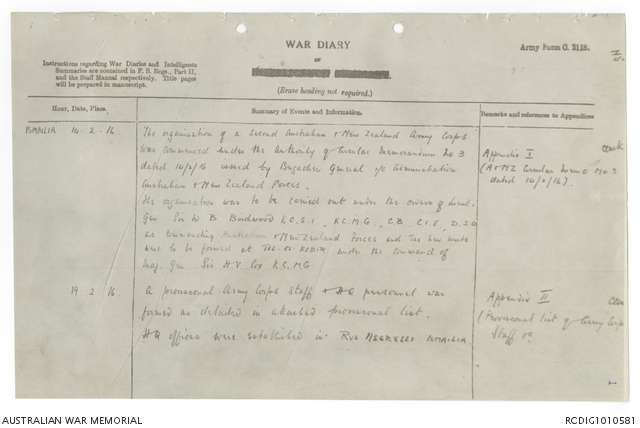 WAR DIARY
OF
Army Form C. 2118.
Instructions regarding War Diaries and Intelligence
Summaries are contained in F. S. Regs., Part II,
and the Staff Manual respectively. Title pages
will be prepared in manuscript.
(Erase heading not required.)
Hour, Date, Place.
Summary of Events and Information.
Remarks and references to Appendices
ISMAILIA 14 . 2 . 16
The organisation of a Second Australian & New Zealand Army Corps
was commenced under the authority of Circular Memorandum No 3
dated 14/2/16 issued by Brigadier General i/c Administration
Australian & New Zealand Forces.
The organisation was to be carried out under the orders of Lieut.
Gen Sir W B Birdwood K.C.S.I., K.C.M.G., C.B., C.I.E., D.S.O
as Commanding Australian & New Zealand Forces and the new units
were to be formed at TEL-EL-KEBIR under the command of
Maj. Gen Sir H.V Cox K.C.M.G
Appendix I
(A & NZ Circular Memo No 3
dated 14/2/16).
19 . 2 . 16
A provisional Army Corps Staff & HQ personnel was
formed as detailed in attached provisional list.
HQ offices were established in Rue NEGRELLI ISMAILIA
Appendix II
(Provisional list of Army Corps
Staff
AUSTRALIAN WAR MEMORIAL
RCDIG1010581